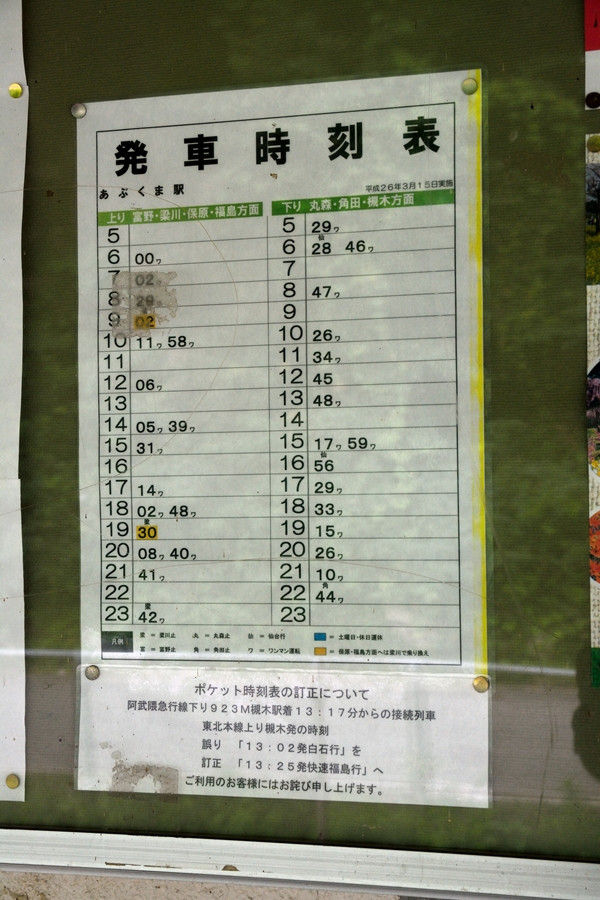 発車時刻表
あぶくま駅
平成26年3月15日実施
上り 富野・梁川・保原・福島方面
下り 丸森・角田・槻木方面
5
6 00ワ
7 02
8 29
9 02
10 11ワ 58ワ
11
12 06ワ
13
14 05ワ 39ワ
15 31ワ
16
17 14ワ
18 02ワ 48ワ
19 梁30
20 08ワ 40ワ
21 41ワ
22
23 梁42ワ
5 29ワ
6 仙28 46ワ
7
8 47ワ
9
10 26ワ
11 34ワ
12 45
13 48ワ
14
15 17ワ 59ワ
16 仙56
17 29ワ
18 33ワ
19 15ワ
20 26ワ
21 10ワ
22 角44ワ
23
凡例
梁 = 梁川止 丸 = 丸森止 仙 = 仙台行 = 土曜日・休日運休
富 = 富野止 角 = 角田止 ワ = ワンマン運転 = 保原・福島方面へは梁川で乗り換え
ポケット時刻表の訂正について
阿武隈急行線下り923M槻木駅着13:17分からの接続列車
東北本線上り槻木発の時刻
誤り 「13:02発白石行」を
訂正 「13:25発快速福島行」へ
ご利用のお客様にはお詫び申し上げます。